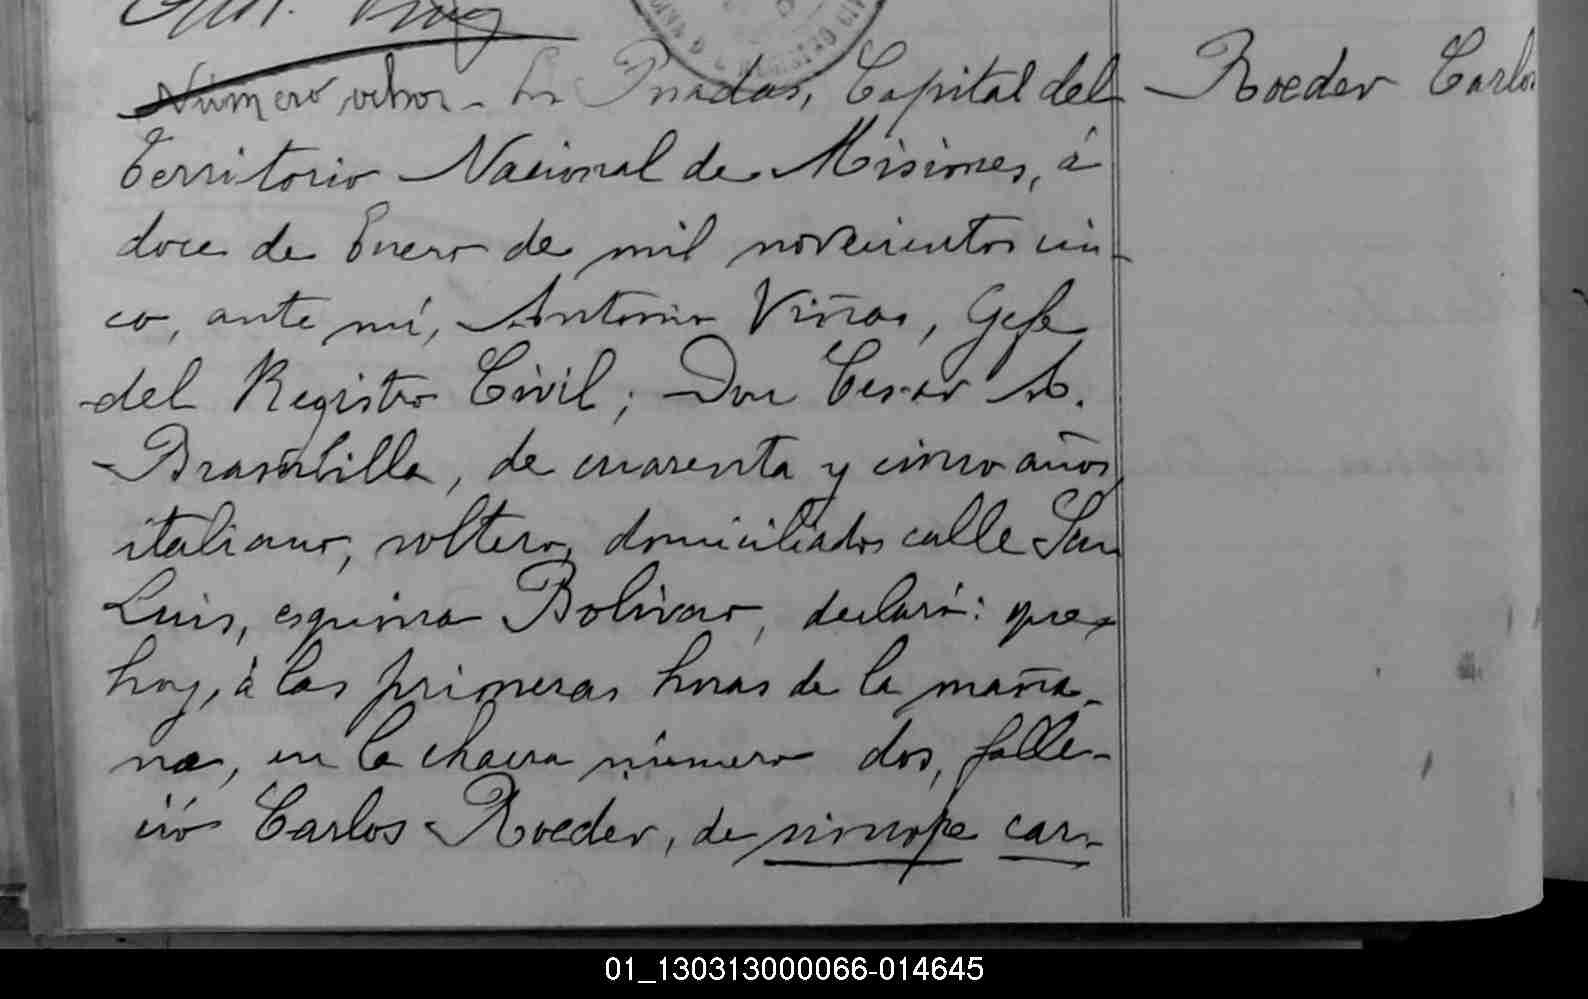 Número ocho. En Posadas, Capital del
Roeder Carlos
Territorio Nacional de Misiones, á
doce de Enero de mil novecientos cin-
co, ante mí, Antonio Viñas, Gefe
del Registro Civil; Don Cesar A.
Brambilla, de cuarenta y cinco años,
italiano, soltero, domiciliado calle San
Luis, esquina Bolivar, declaró: que
hoy, á las primeras horas de la maña-
na, en la chacra número dos, falle-
ció Carlos Roeder, de sincope car-
01_130313000066-014645